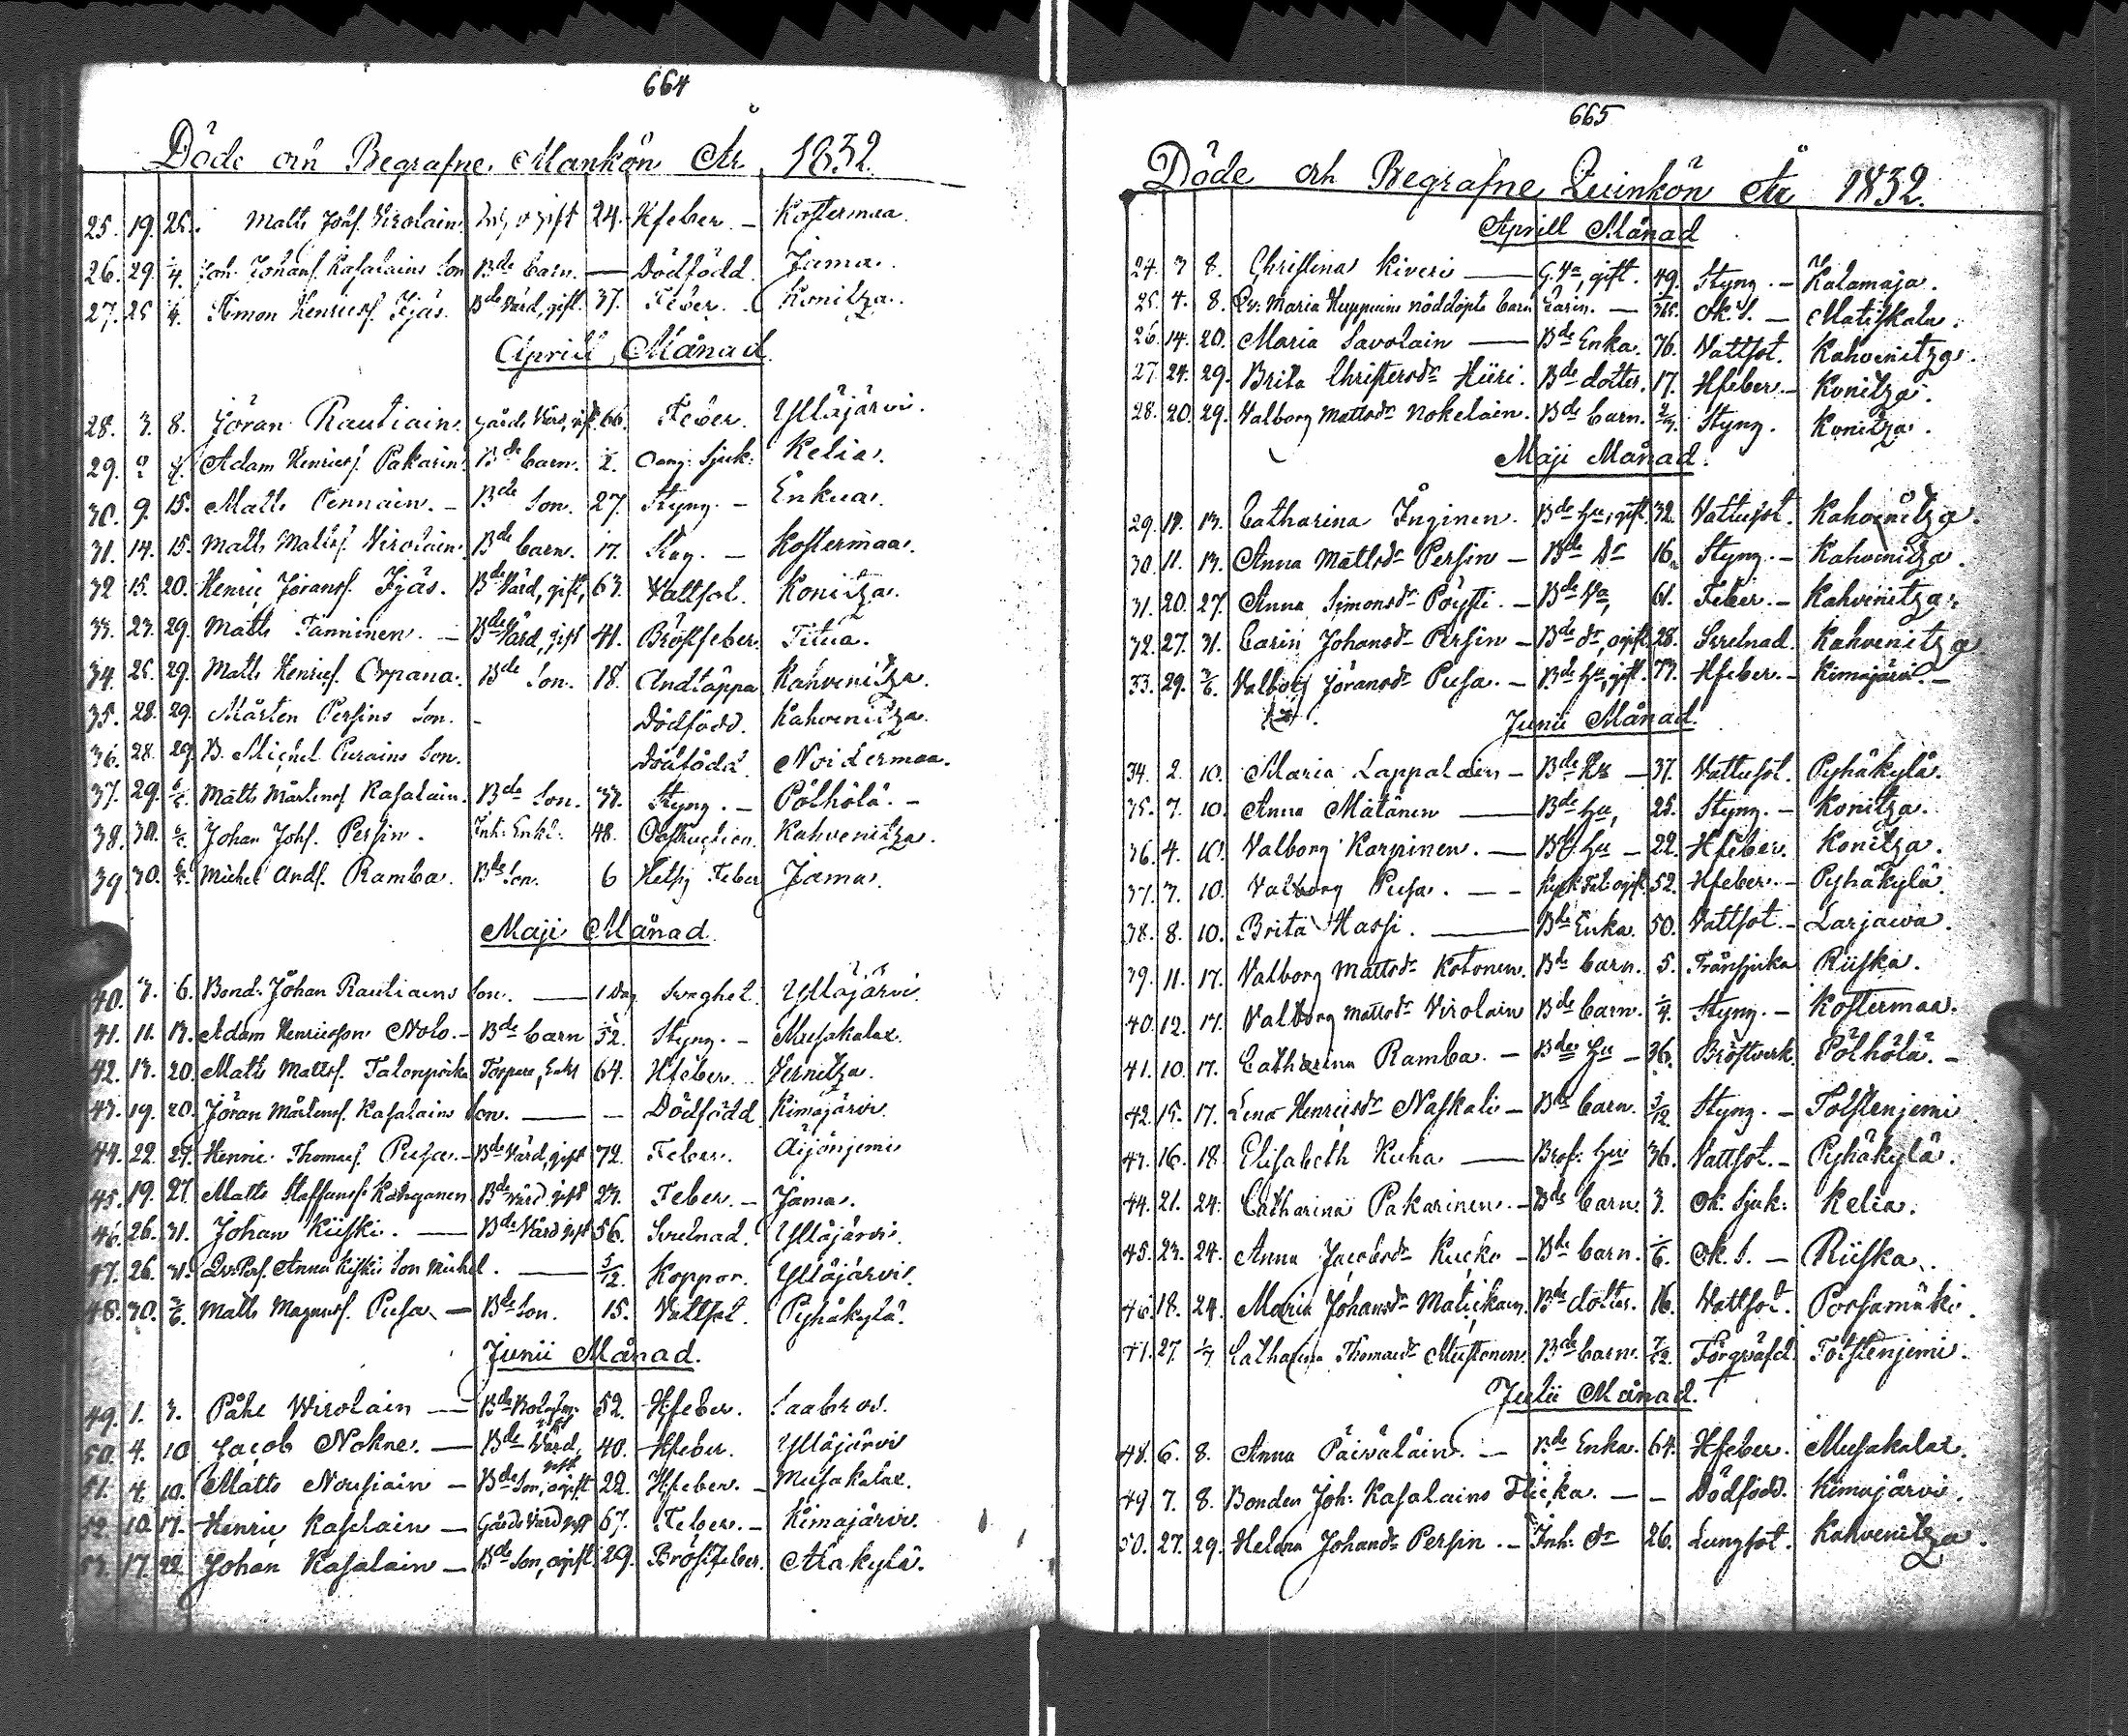 664
Döde och Begrafne Mankön År 1832.
25. 19. 25. Matts Johsſ. Virolain 24. Hfeber. – Kostermaa.
26. 29. 1/4 Joh. Johansſ. Kasalains Son Bde barn. — Dödfödd. Jama.
27. 25 Simon Henricsſ. Ijäs. Bde Värd, gift. 37. Feber. Konitza.
Aprill Månad.
28. 3. 8. Jöran Rautiain. gårds Värd, gift 66. Feber. Ylläjärvi.
29. Adam Henricsſ. Pakarin. Bde barn. Oang: Sjuk: Kelia.
30. 9. 15. Matts Pennain. – Bde Son. 27. Styng. – Enkua.
31. 14. 15. Matts Mattsſ. Virolain. Bde barn. 17. – Kostermaa.
32 15. 20. Henric Jöransſ. Ijäs. Bde Värd, gift, 63. Vattsot. Konitza.
33. 23. 29. Matts Tanninen. – Bde Värd, gift 41. Bröstfeber. Titua.
34. 25. 29. Matts Henricsſ. Orpana. Bde Son. 18. Andtäppa Kahvenitza.
35. 28. 29. Mårten Persins Son. – Dödfödd. Kahvenitza.
36. 28. 29. B. Michel Purains Son. Dödfödd. Noidermaa.
37. 29. Matts Mårtensſ. Kasalain. Bde Son. 37. Styng. – Pölhölä. –
38. 30. Johan Johsſ. Persin. Inh: Enkl: 48. Obstruction. Kahvenitza.
39 30. Michel Andsſ. Ramba. Bde Son. 6 Hetsig Feber Jama.
Maji Månad
40. 3. 6. Bond: Johan Rautiains Son. — 1 Dag Svaghet. Ylläjärvi.
41. 11. 13. Adam Henricsson Nolo. – Bde barn 1/52. Styng. – Musakalax.
42. 13. 20. Matts Mattsſ. Talonpoika Torpare, Enkl 64. Hfeber. Vernitza.
43. 19. 20. Jöran Mårtensſ. Kasalains Son. — – Dödfödd Kimajärvi.
44. 22. 27. Henric Thomasſ. Pusa. – Bde Värd, gift 72. Feber. Äijänjemi
45. 19. 27. Matts Staffansſ. Karganen Bde Värd gift 23. Feber. – Jama.
46. 26. 31. Johan Kiiski. — Bde Värd gift 56. Svulnad. Ylläjärvi.
47. 26. 31. Qv: Pers. Anna Kiskis Son Michel. — 3/12. Koppor. Ylläjärvi.
48. 30. 3/6. Matts Magnusſ. Pusa – Bde Son. 15. Vattsot. Pyhäkylä.
Junii Månad.
49. 1. 3. Påhl Wirolain — Bde Bolagsm: 52. Hfeber. Saabros.
50. 4. 10 Jacob Nokne. — Bde Värd, gift 40. Hfeber. Ylläjärvi
51. 4. 10. Matts Nousiain – Bde Son, ogift 22. Hfeber. – Musakalax.
52. 10. 17. Henric Kasalain – Gårds Värd gift 67. Feber. – Kimajärvi.
53. 17. 22. Johan Kasalain – Bde Son, ogift. 29. Bröstfeber. Alakylä.
665
Döde och Begrafne Qvinkön År 1832.
Aprill Månad
24. 3 8. Christina Kiveri — G. Va, gift. 49. Styng. – Kalamaja.
25. 4. 8. Qv: Maria Huppuins nöddöpta barn Carin. — /365. Ok. S. – Matiskala.
26. 14. 20. Maria Savolain — Bde Enka. 76. Vattsot. Kahvenitza.
27. 24. 29. Brita Christersdr Hiiri. Bde dotter. 17. Hfeber. – Konitza.
28. 20. 29. Valborg Mattsdr Nokelain. Bde barn. Styng. Konitza.
Maji Månad.
29. 13. Catharina Inginen. Bde Hu, gift. 32. Vattusot. Kahvenitza.
30. 11. 13. Anna Mattsdr Persin – Bde Dr 16. Styng. – Kahvenitza.
31. 20. 27. Anna Simonsdr Pöysti. – Bde Va, 61. Feber. – Kahvenitza.
32. 27. 31. Carin Johansdr Persin – Bde dr, ogift. 28. Svulnad. Kahvenitza
33. 29. 3/6. Valborg Jöransdr Pusa. – Bde Hu, gift. 77. Hfeber. – Kimajärvi. –
Junii Månad.
34. 2. 10. Maria Lappalain – Bde – 37. Vattusot. Pyhäkylä.
35. 7. 10. Anna Mätänen — Bde Hu, 25. Styng. – Konitza.
36. 4. 10. Valborg Karpinen. — Bde Hu – 22. Hfeber. Konitza.
37. 7. 10. Valborg Pusa. — ogift. 52. Hfeber. – Pyhäkylä.
38. 8. 10. Brita Hassi. — Bde Enka. 50. Vattsot. – Larjawa.
39. 11. 17. Valborg Mattsdr Kotonen. Bde barn. 5. Tränsjuka Riiska.
40. 12. 17. Valborg Mattsdr Virolain Bde barn. 1/4. Styng. – Kostermaa.
41. 10. 17. Catharina Ramba. – Bdes Hu – 36. Bröstverk. Pölhölä. –
42. 15. 17. Lena Henricsdr Naskali – Bde barn. 3/12. Styng. – Tolstenjemi
43. 16. 18 Elisabeth Kuha — Hu 36. Vattsot. – Pyhäkylä.
44. 21. 24. Catharina Pakarinen. – Bde barn. 3. Ok. Sjuk: Kelia.
45. 23. 24. Anna Jacobsdr Kucko – Bde barn. 1/6. Ok. S. – Riiska.
46. 18. 24. Maria Johansdr Matickain. Bde dotter. 16. Vattsot. Porsamäki.
47. 27. 1/7 Catharina Thomasdr Mustonen. Bde barn. 7/12. Förqväfd. Tolstenjemi.
Julii Månad.
48. 6. 8. Anna Päiväläin. – Bde Enka. 64. Hfeber. Musakalax.
49 7. 8. Bonden Joh: Kasalains Flicka. — – Dödfödd. Kimajärvi.
50. 27. 29. Helena Johansdr Persin. – Inh: dr 26. Lungsot. Kahvenitza.